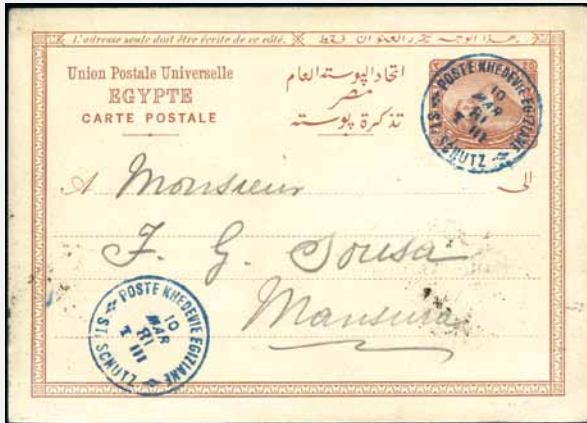 L'adresse seule doit être écrite de ce côté. هذا الوجه يحرر العنوان فقط
Union Postale Universelle
EGYPTE
CARTE POSTALE
اتحاد البوسته العام
مصر
تذكرة بوسته
POSTE KHEDEVIE EGIZIANE
10
MAR
81
T III
ST. SCHUTZ
A Monsieur
الى
F. G. Sousa
Mansura
POSTE KHEDEVIE EGIZIANE
10
MAR
81
T III
ST. SCHUTZ